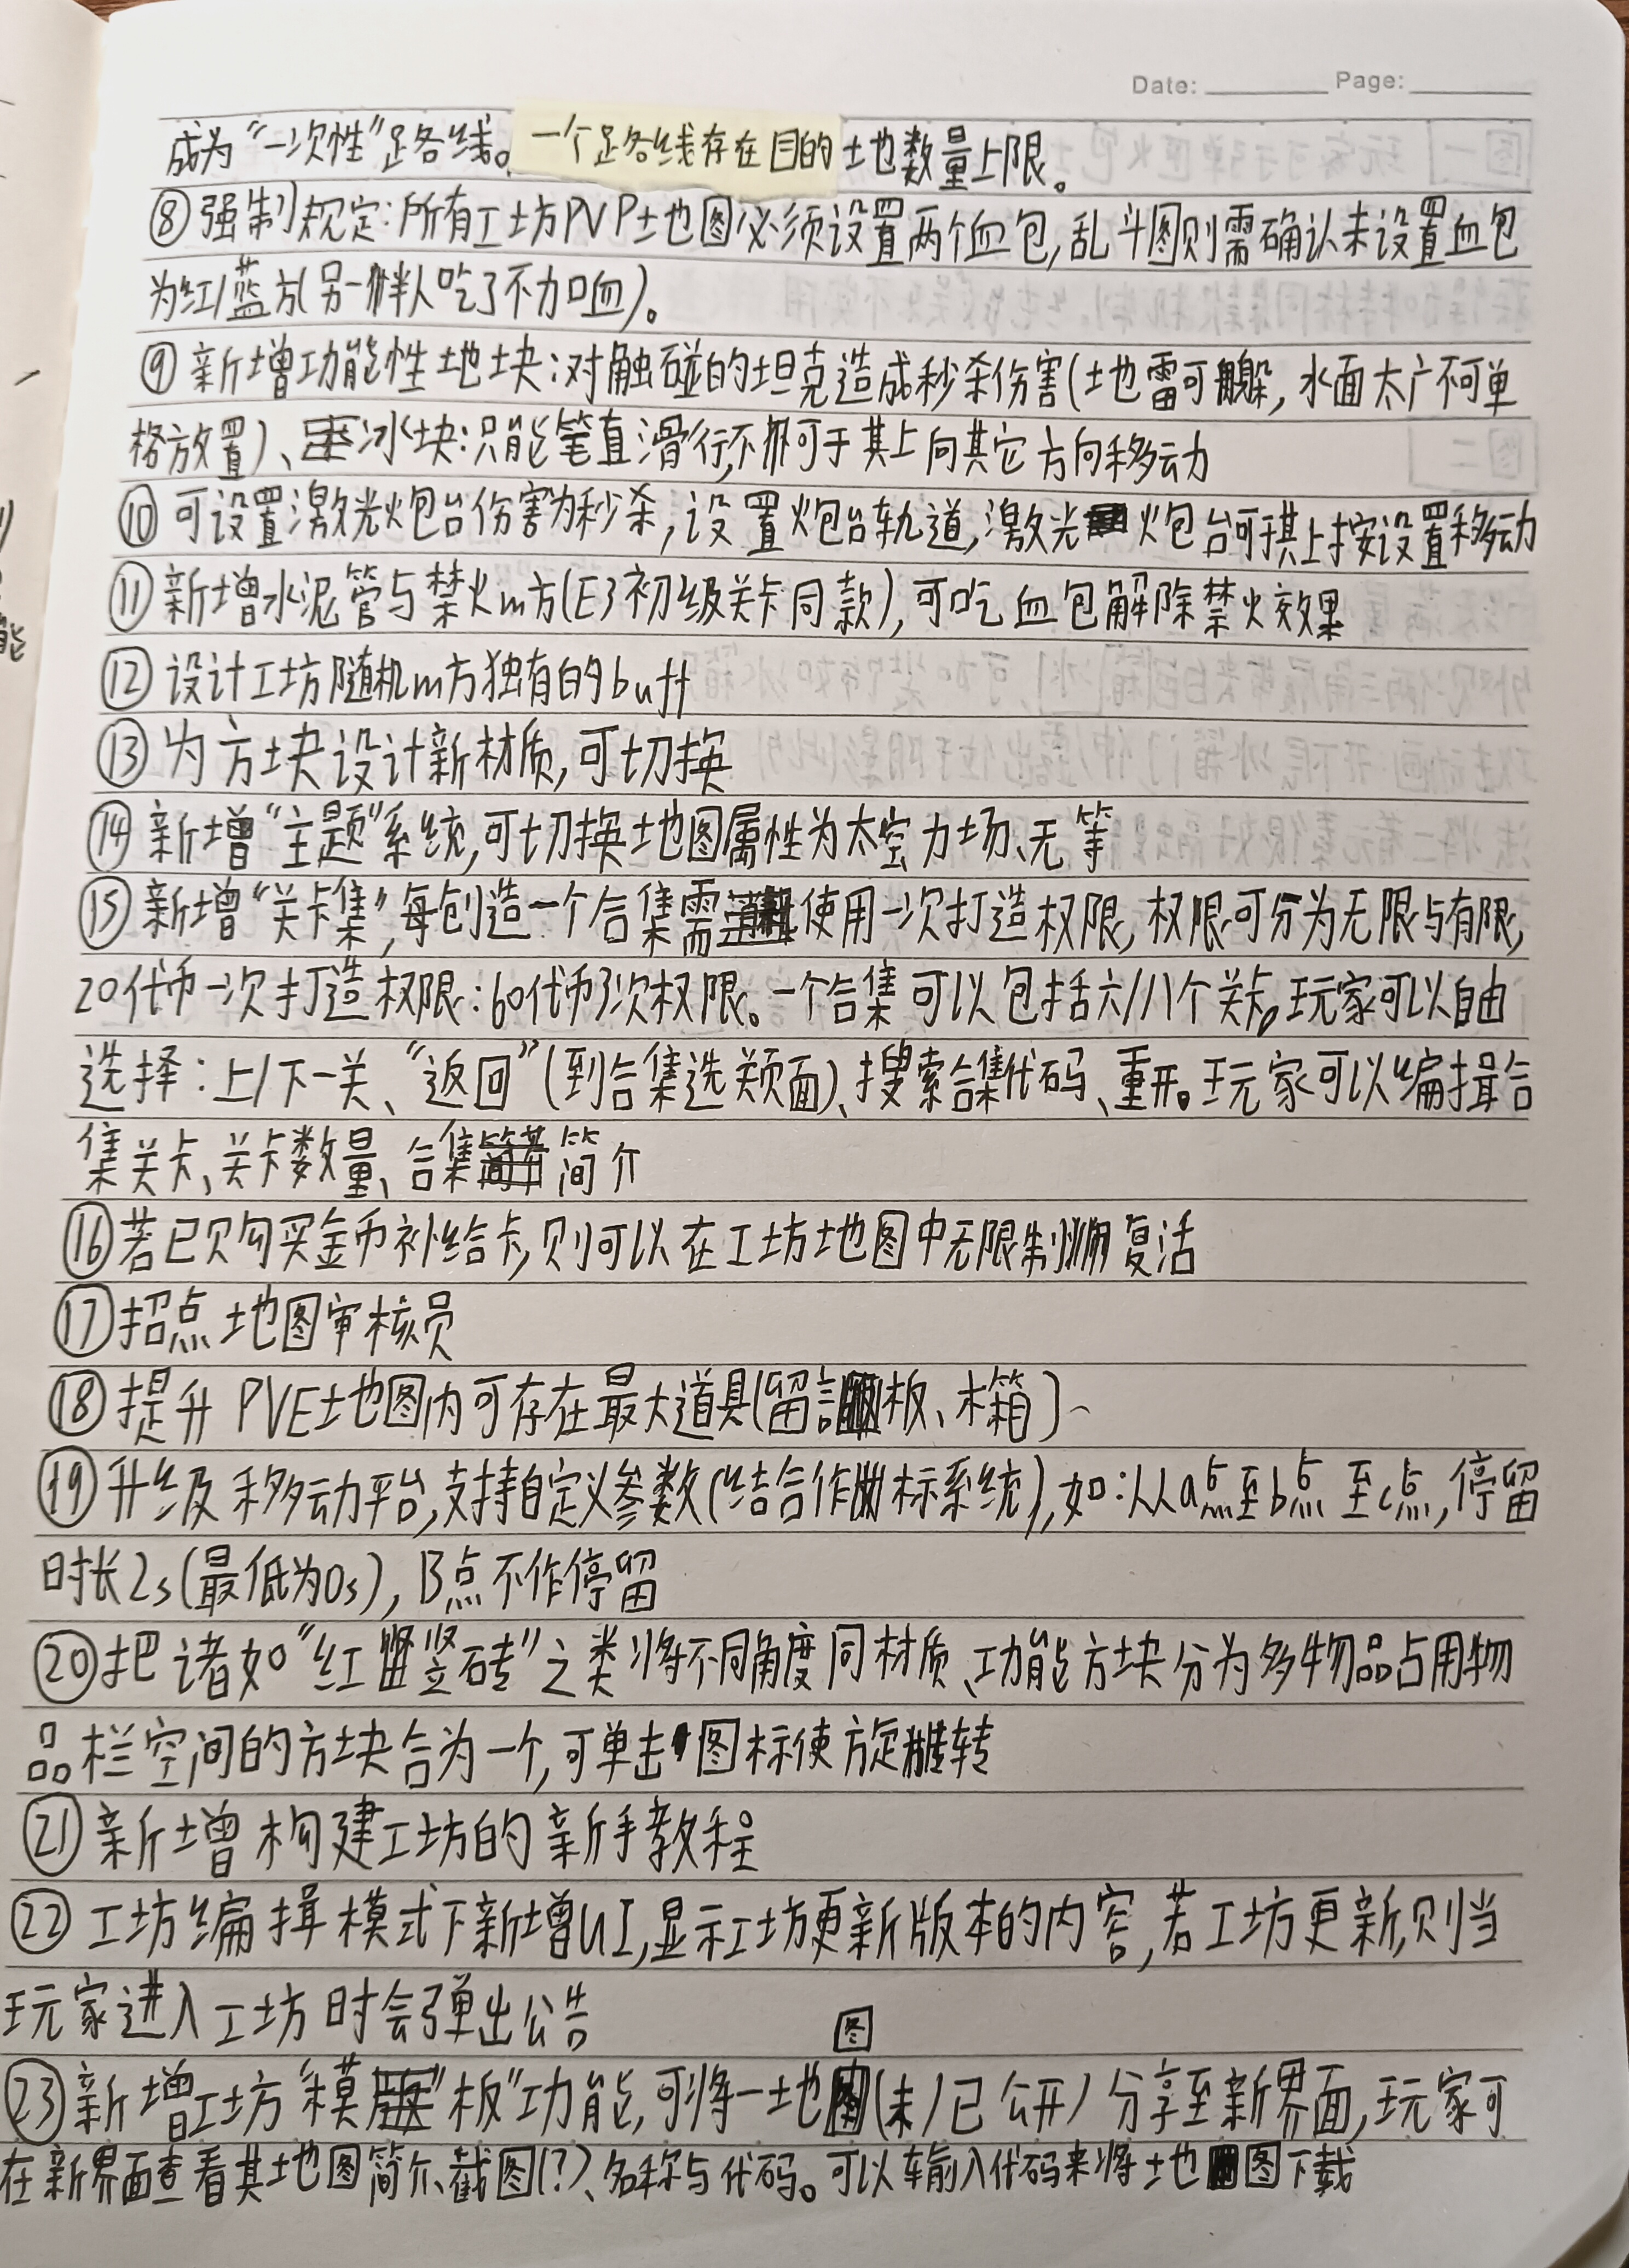 Date: Page:
成为“一次性”路线。一个路线存在目的土地数量上限。
⑧强制规定:所有工坊PVP地图必须设置两个血包,乱斗图则需确认未设置血包
为红/蓝方(另一伙人吃了不加血)。
⑨新增功能性地块:对触碰的坦克造成秒杀伤害(地雷可躲,水面太广不可单
格放置)、冰块:只能笔直滑行,不可于其上向其它方向移动
⑩可设置激光炮台伤害为秒杀,设置炮台轨道,激光炮台可于其上按设置移动
⑪新增水泥管与禁火m方(E3初级关卡同款),可吃血包解除禁火效果
⑫设计工坊随机m方独有的buff
⑬为方块设计新材质,可切换
⑭新增“主题”系统,可切换地图属性为太空力场、无等
⑮新增“关卡集”,每创造一个合集需使用一次打造权限,权限可分为无限与有限,
20代币一次打造权限:60代币3次权限。一个合集可以包括六/八个关卡,玩家可以自由
选择:上/下一关、“返回”(到合集选关页面)、搜索合集代码、重开。玩家可以编揖合
集关卡、关卡数量、合集简介
⑯若已购买金币补给卡,则可以在工坊地图中无限制复活
⑰招点地图审核员
⑱提升PVE地图内可存在最大道具(留言板、木箱)
⑲升级移动平台,支持自定义参数(结合作标系统),如:从a点至b点至c点,停留
时长2s(最低为0s),B点不作停留
⑳把诸如“红竖砖”之类将不同角度同材质、功能方块分为多物品占用物
品栏空间的方块合为一个,可单击图标使方旋转
㉑新增构建工坊的新手教程
㉒工坊编揖模式下新增UI,显示工坊更新版本的内容,若工坊更新,则当
玩家进入工坊时会弹出公告
㉓新增工坊“模板”功能,可将一地图(未/已公开)分享至新界面,玩家可
在新界面查看其地图简介、截图(?)、名称与代码。可以输入代码来将地图下载